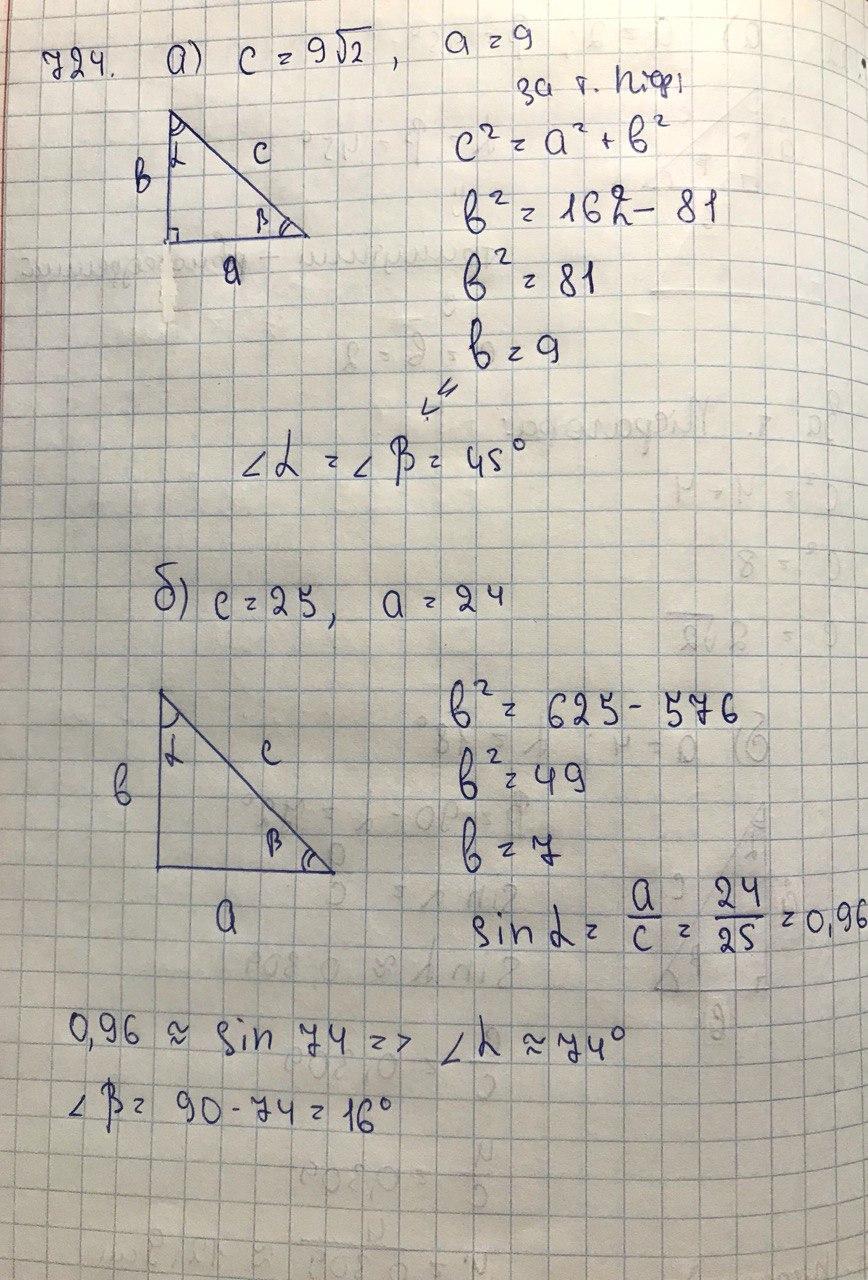 724. а) c = 9√2 , a = 9
за т. Піф
c² = a² + b²
b² = 162 - 81
b² = 81
b = 9
α
c
b
β
a
∠α = ∠β = 45°
б) c = 25, a = 24
b² = 625 - 576
b² = 49
b = 7
α
c
b
β
a
sin α = a/c = 24/25 = 0,96
0,96 ≈ sin 74 => ∠α ≈ 74°
∠β = 90 - 74 = 16°